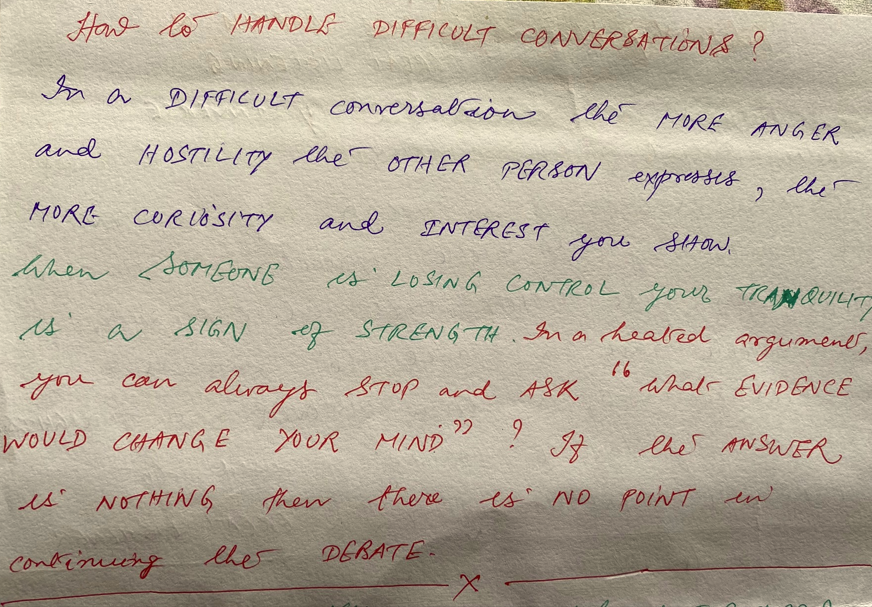 How to HANDLE DIFFICULT CONVERSATIONS ?
In a DIFFICULT conversation the MORE ANGER
and HOSTILITY the OTHER PERSON expresses, the
MORE CURIOSITY and INTEREST you SHOW.
When SOMEONE is LOSING CONTROL your TRANQUILITY
is a SIGN of STRENGTH. In a heated argument,
you can always STOP and ASK "What EVIDENCE
WOULD CHANGE YOUR MIND" ? If the ANSWER
is NOTHING then there is NO POINT in
continuing the DEBATE.
X